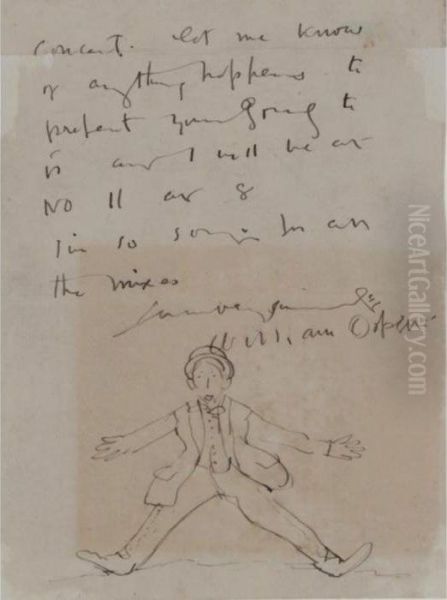 Concert. let me know
if anything happens to
prevent you going to
is and I will be at
No 11 at 8
I'm so sorry for all
the mixes
William Orpen
NiceArtGallery.com